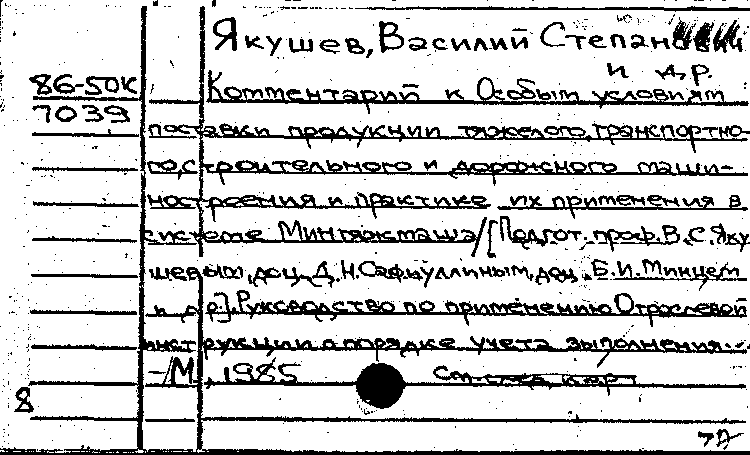 Якушев, Василий Степанович
и др.
86-50К
7039
Комментарий к Особым условиям
поставки продукции тяжелого, транспортно-
го, строительного и дорожного маши-
ностроения и практике их применения в
системе Минтяжмаша/[Подгот. проф. В.С. Яку
шевым, доц. Д.Н. Сафиуллиным, доц. Б.И. Минцем
и др.]. Руководство по применению Отраслевой
инструкции о порядке учета выполнения...
-М, 1985 См. след. карт
8